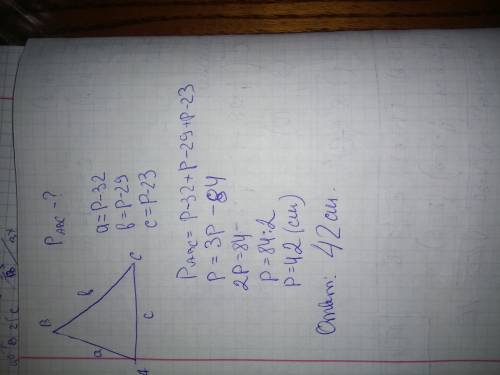 P ABC - ?
a = P-32
b = P-29
c = P-23
B
a
b
c
A
C
P ABC = P-32 + P-29 + P-23
P = 3P - 84
2P = 84
P = 84:2
P = 42 (см)
Ответ: 42 см.